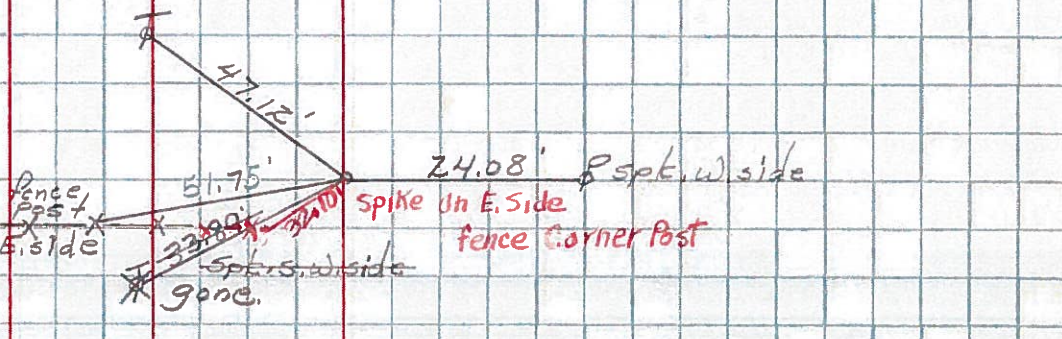 47.12'
51.75'
24.08'
spt. W. side
fence
Post
E. side
33.89'
32.10'
Spike in E. Side
fence Corner Post
Spt. S.W. side
gone.